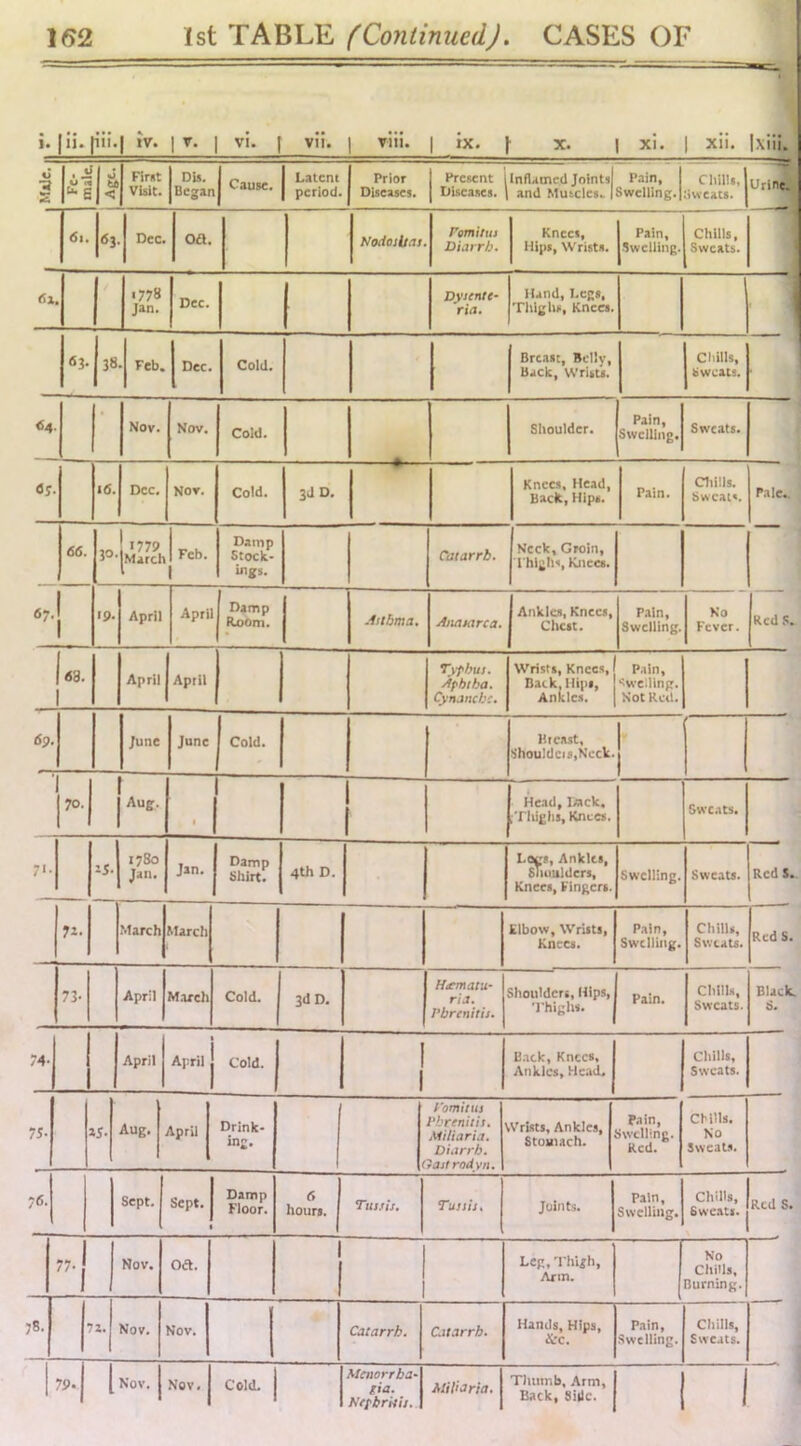 162 1st TABLE (Continued). CASES OF
i. | ii. | iii. | iv. | v. | vi. | vii. | viii. | ix. | x. | xi. | xii. | xiii.
Male. | Fe-male. | Age. | First Visit. | Dis. Began | Cause. | Latent period. | Prior Diseases. | Present Diseases. | Inflamed Joints and Muscles. | Pain, Swelling. | Chills, Sweats. | Urine.
61. | 63. | Dec. | Oct. | Nodositas. | Vomitus Diarrh. | Knees, Hips, Wrists. | Pain, Swelling. | Chills, Sweats.
62. | 1778 Jan. | Dec. | Dysente-ria. | Hand, Legs, Thighs, Knees.
63. | 38. | Feb. | Dec. | Cold. | Breast, Belly, Back, Wrists. | Chills, Sweats.
64. | Nov. | Nov. | Cold. | Shoulder. | Pain, Swelling. | Sweats.
65. | 16. | Dec. | Nov. | Cold. | 3d D. | Knees, Head, Back, Hips. | Pain. | Chills. Sweats. | Pale.
66. | 30. | 1779 March | Feb. | Damp Stock-ings. | Catarrh. | Neck, Groin, Thighs, Knees.
67. | 19. | April | April | Damp Room. | Asthma. | Anasarca. | Ankles, Knees, Chest. | Pain, Swelling. | No Fever. | Red S.
68. | April | April | Typhus. Aphtha. Cynanche. | Wrists, Knees, Back, Hips, Ankles. | Pain, Swelling. Not Red.
69. | June | June | Cold. | Breast, Shoulders, Neck.
70. | Aug. | Head, Back, Thighs, Knees. | Sweats.
71. | 25. | 1780 Jan. | Jan. | Damp Shirt. | 4th D. | Legs, Ankles, Shoulders, Knees, Fingers. | Swelling. | Sweats. | Red S.
72. | March | March | Elbow, Wrists, Knees. | Pain, Swelling. | Chills, Sweats. | Red S.
73. | April | March | Cold. | 3d D. | Hæmatu-ria. Phrenitis. | Shoulders, Hips, Thighs. | Pain. | Chills, Sweats. | Black S.
74. | April | April | Cold. | Back, Knees, Ankles, Head. | Chills, Sweats.
75. | 25. | Aug. | April | Drink-ing. | Vomitus Phrenitis. Miliaria. Diarrh. Gastrodyn. | Wrists, Ankles, Stomach. | Pain, Swelling. Red. | Chills. No Sweats.
76. | Sept. | Sept. | Damp Floor. | 6 hours. | Tussis. | Tussis. | Joints. | Pain, Swelling. | Chills, Sweats. | Red S.
77. | Nov. | Oct. | Leg, Thigh, Arm. | No Chills, Burning.
78. | 72. | Nov. | Nov. | Catarrh. | Catarrh. | Hands, Hips, &c. | Pain, Swelling. | Chills, Sweats.
79. | Nov. | Nov. | Cold. | Menorrha-gia. Nephritis. | Miliaria. | Thumb, Arm, Back, Side.